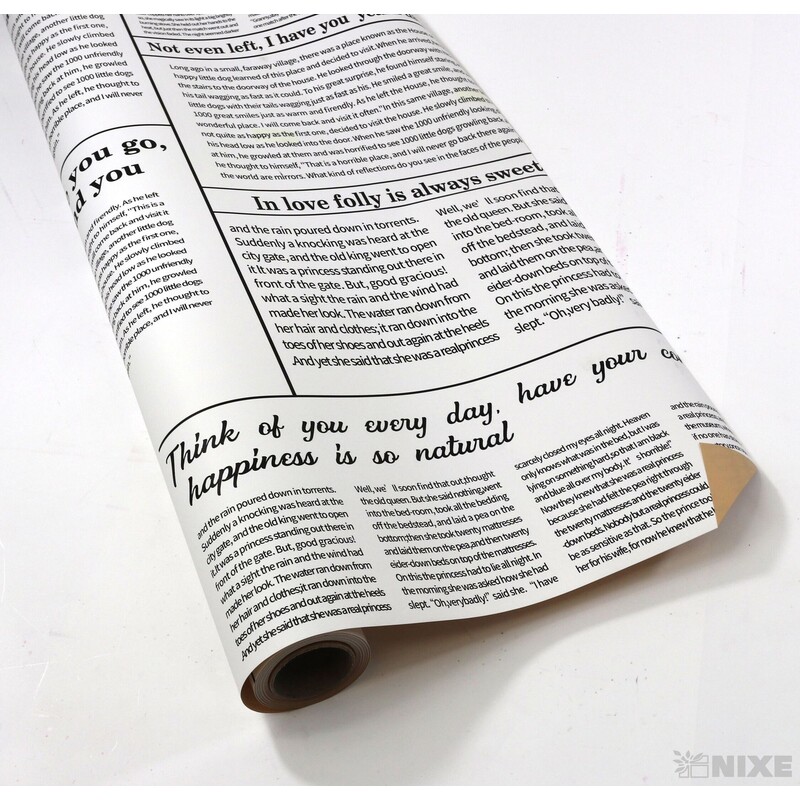 Not even left, I have you
Long ago in a small, faraway village, there was a place known as the House
happy little dog learned of this place and decided to visit. When he arrived
the stairs to the doorway of the house. He looked through the doorway
his tail wagging as fast as it could. To his great surprise, he found himself staring
little dogs with their tails wagging just as fast as his. He smiled a great smile, and
1000 great smiles just as warm and friendly. As he left the House, he thought
wonderful place. I will come back and visit it often." In this same village, another
not quite as happy as the first one, decided to visit the house. He slowly climbed
his head low as he looked into the door. When he saw the 1000 unfriendly looking
at him, he growled at them and was horrified to see 1000 little dogs growling back
he thought to himself, "That is a horrible place, and I will never go back there again
the world are mirrors. What kind of reflections do you see in the faces of the people
come back and visit it
village, another little dog
happy as the first one,
use. He slowly climbed
his head low as he looked
saw the 1000 unfriendly
back at him, he growled
horrified to see 1000 little dogs
As he left, he thought to
horrible place, and I will never
you go,
you
and friendly. As he left
to himself, "This is a
come back and visit it
village, another little dog
happy as the first one,
He slowly climbed
as he looked
saw the 1000 unfriendly
back at him, he growled
to see 1000 little dogs
As he left, he thought to
place, and I will never
In love folly is always sweet
and the rain poured down in torrents.
Suddenly a knocking was heard at the
city gate, and the old king went to open
it.It was a princess standing out there in
front of the gate. But, good gracious!
what a sight the rain and the wind had
made her look. The water ran down from
her hair and clothes; it ran down into the
toes of her shoes and out again at the heels
And yet she said that she was a real princess
Well, we' ll soon find that
the old queen. But she said
into the bed-room, took all
off the bedstead, and laid
bottom; then she took twenty
and laid them on the pea
eider-down beds on top
On this the princess had
the morning she was asked
slept. "Oh,very badly!"
Think of you every day, have your
happiness is so natural
and the rain poured down in torrents.
Suddenly a knocking was heard at the
city gate, and the old king went to open
it.It was a princess standing out there in
front of the gate. But, good gracious!
what a sight the rain and the wind had
made her look. The water ran down from
her hair and clothes;it ran down into the
toes of her shoes and out again at the heels
And yet she said that she was a real princess
Well, we' ll soon find that out,thought
the old queen. But she said nothing,went
into the bed-room, took all the bedding
off the bedstead, and laid a pea on the
bottom;then she took twenty mattresses
and laid them on the pea,and then twenty
eider-down beds on top of the mattresses.
On this the princess had to lie all night. In
the morning she was asked how she had
slept. "Oh,very badly!" said she. "I have
scarcely closed my eyes all night. Heaven
only knows what was in the bed, but I was
lying on something hard, so that I am black
and blue all over my body. It' s horrible!"
Now they knew that she was a real princess
because she had felt the pea right through
the twenty mattresses and the twenty eider
down beds. Nobody but a real princess could
be as sensitive as that. So the prince took
her for his wife, for now he knew that he
and the rain
a real princess,
the museum
if no one has
NIXE